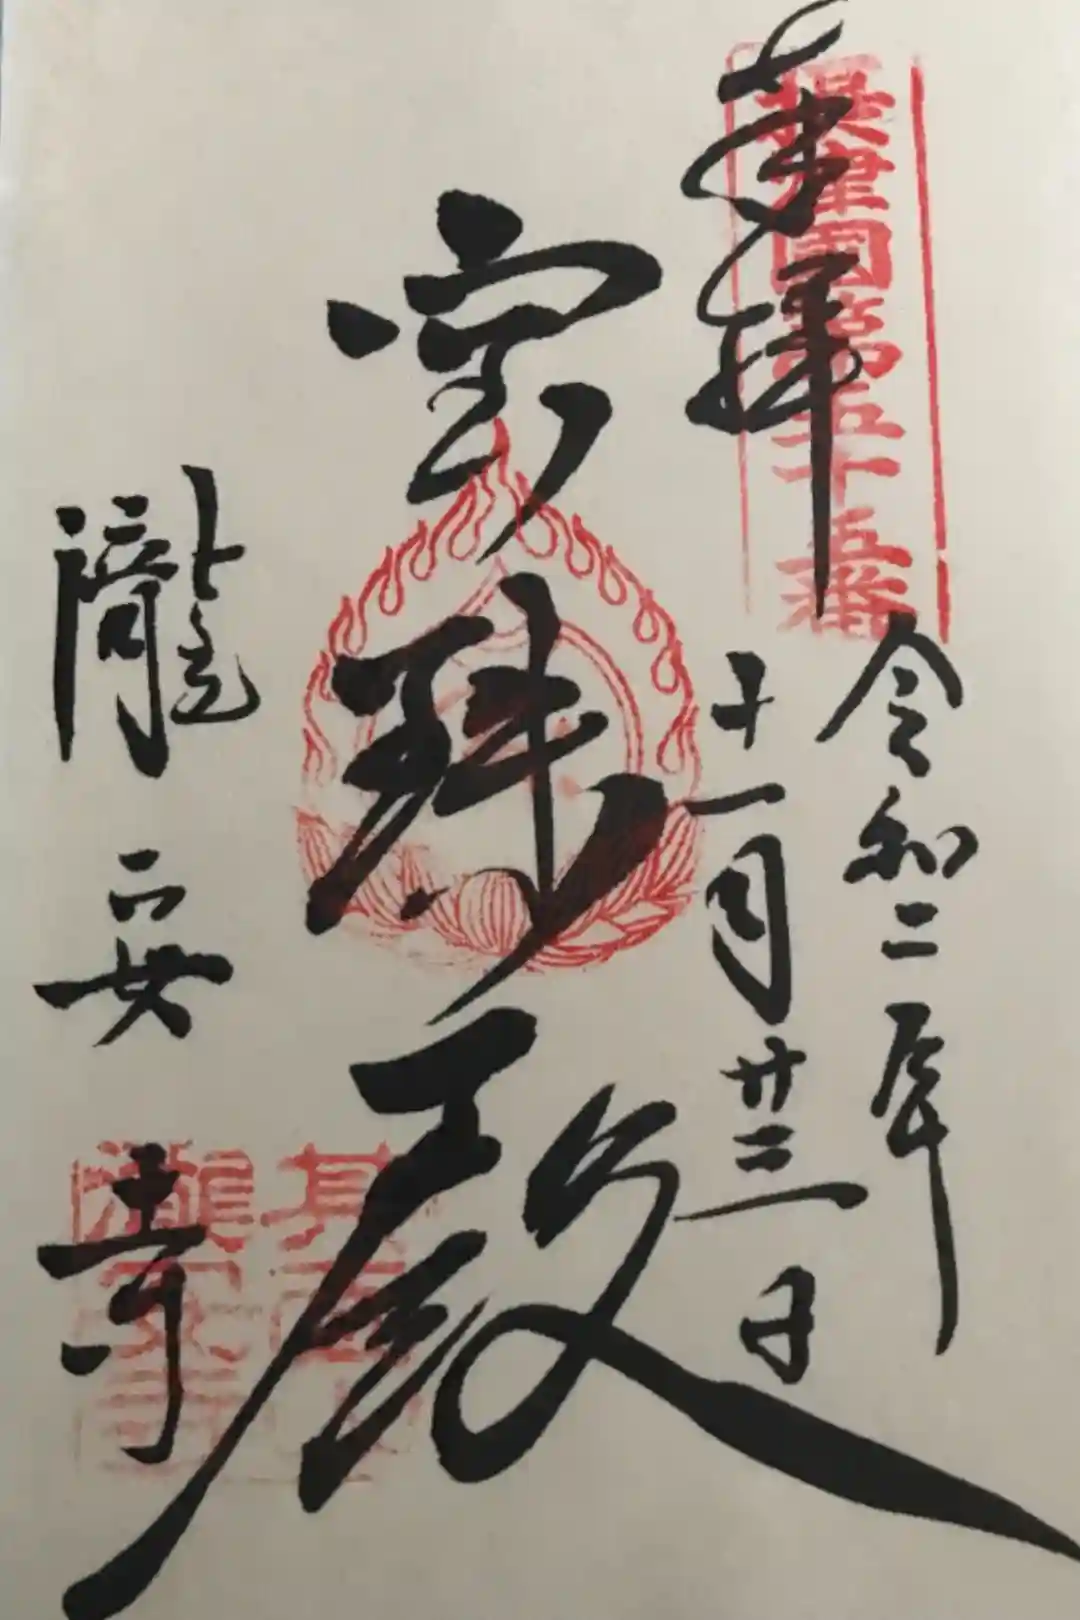 奉拝
摂津國第五十五番
令和二年
十一月廿三日
宝珠殿
瀧安寺
箕面山
瀧安寺